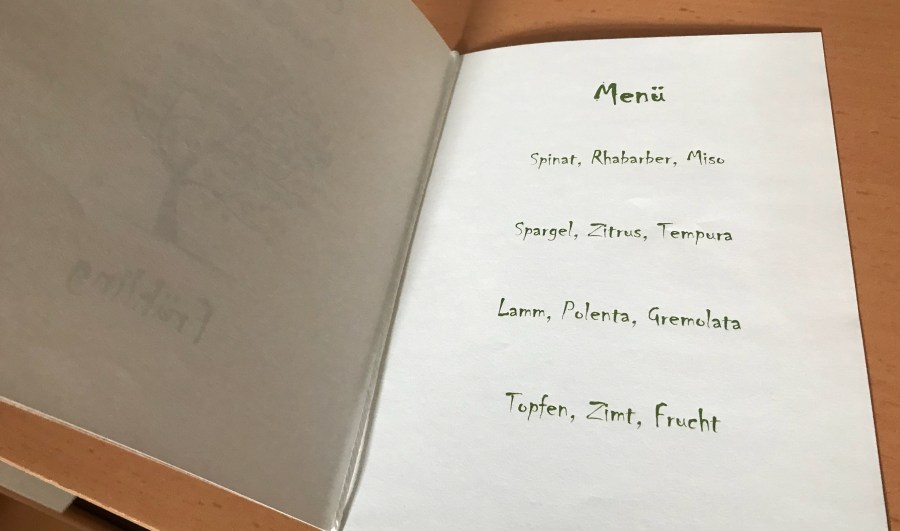 Frühling
Menü
Spinat, Rhabarber, Miso
Spargel, Zitrus, Tempura
Lamm, Polenta, Gremolata
Topfen, Zimt, Frucht